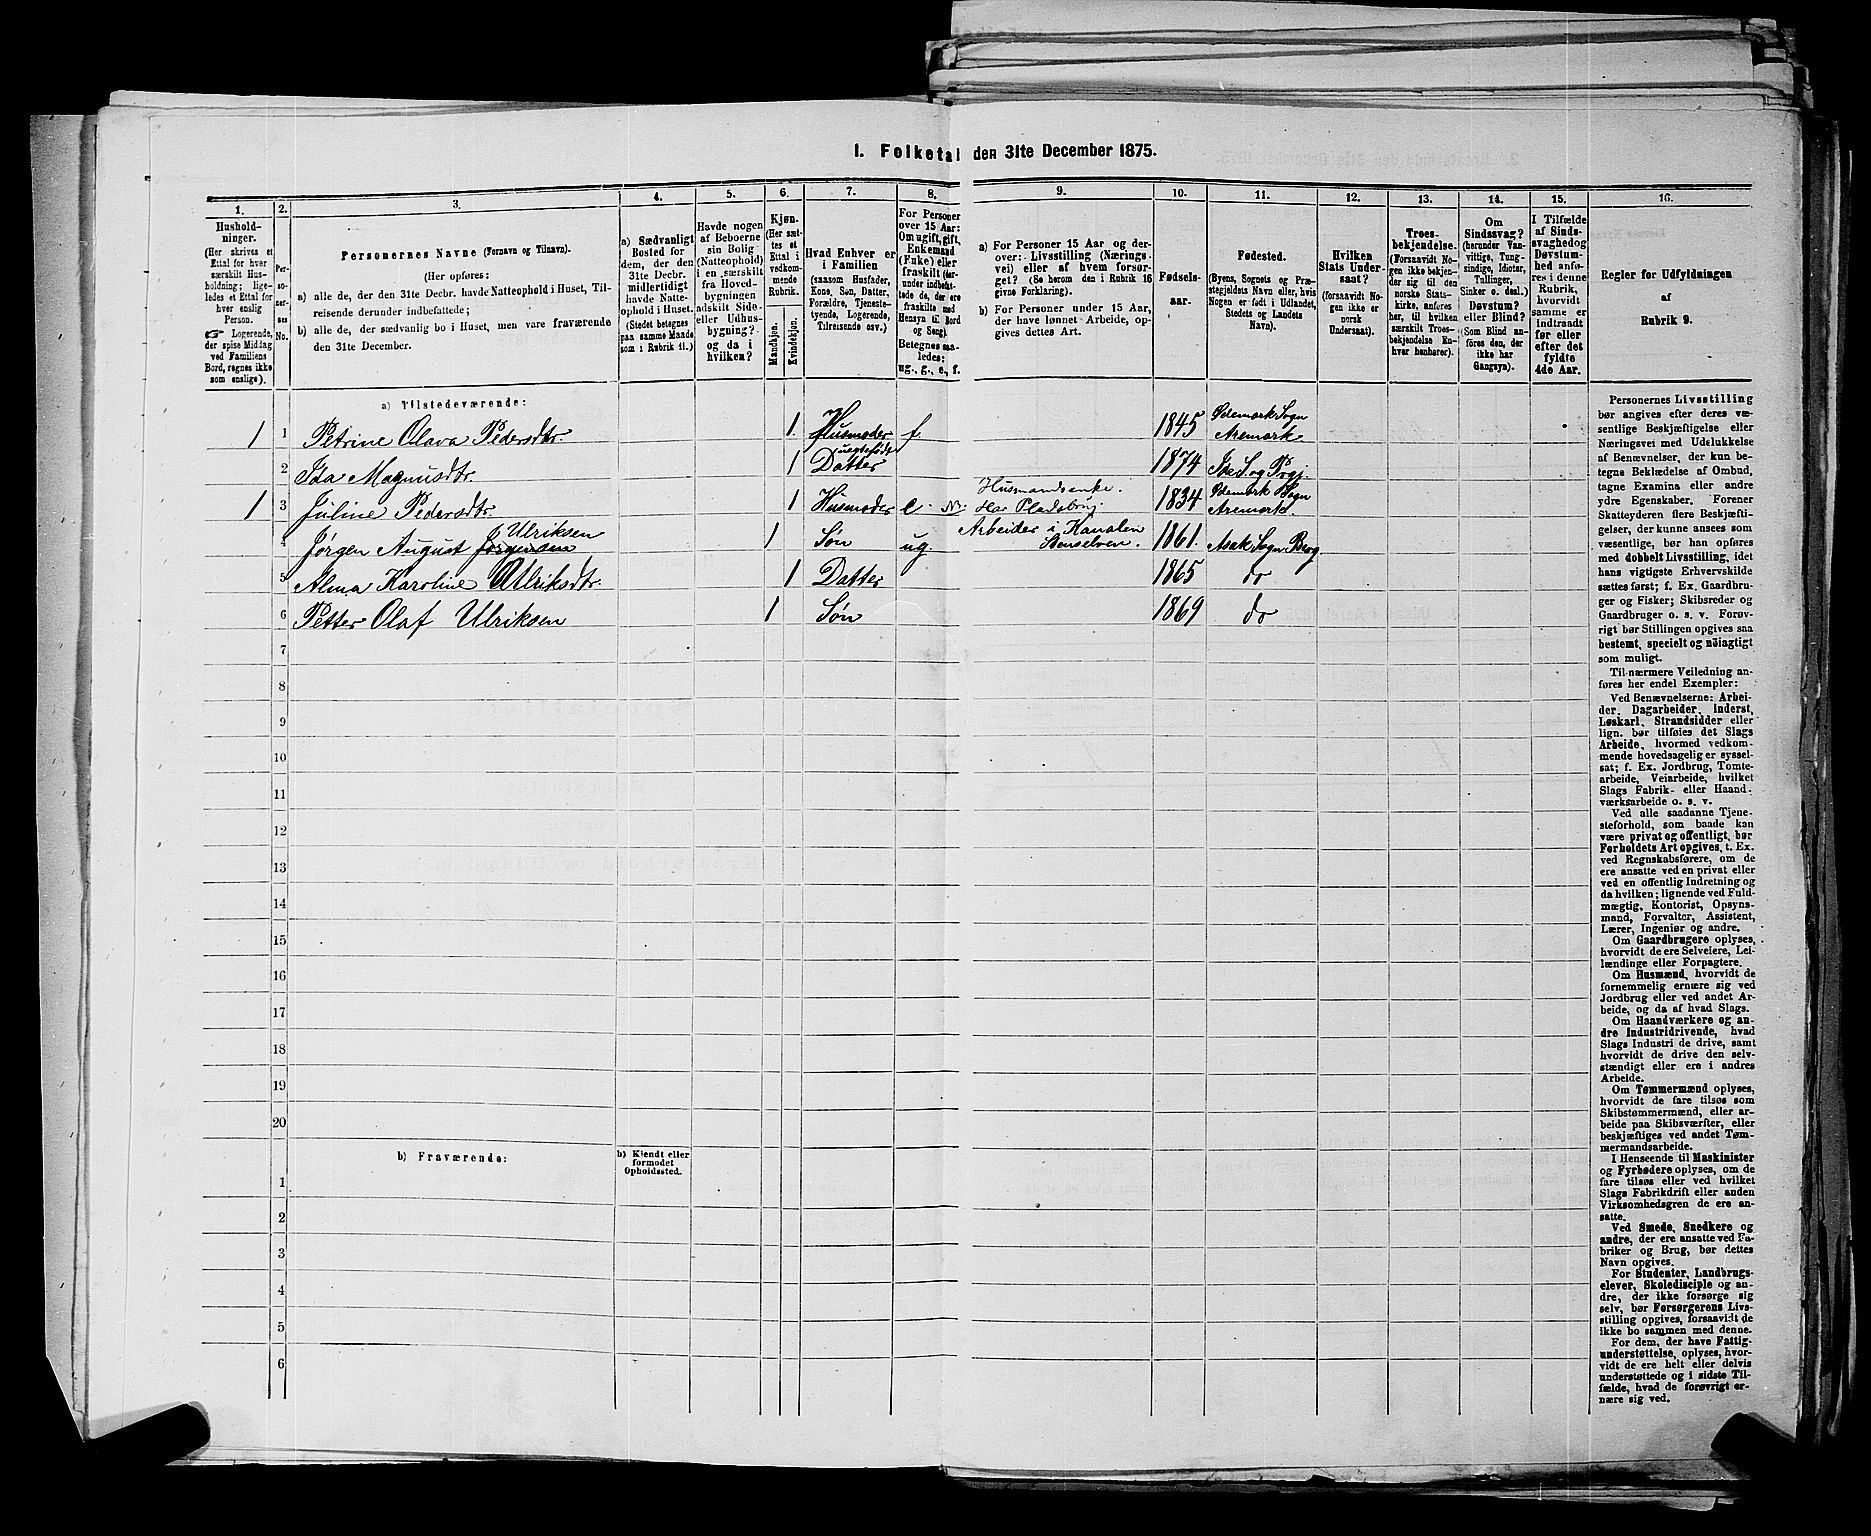 1. Folketal den 31te December 1875.
1.
Hushold-
ninger.
(Her skrives et
Ettal for hver
særskilt Hus-
holdning; lige-
ledes et Ettal for
hver enslig
Person.
☞ Logerende,
der spise Middag
ved Familiens
Bord, regnes ikke
som enslige).
2.
Per-
so-
ner-
nes
No.
3.
Personernes Navne (Fornavn og Tilnavn).
(Her opføres:
a) alle de, der den 31te Decbr. havde Natteophold i Huset, Til-
reisende derunder indbefattede;
b) alle de, der sædvanlig bo i Huset, men vare fraværende
den 31te December.
4.
a) Sædvanligt
Bosted for
dem, der den
31te Decbr.
midlertidigt
havde Natte-
ophold i Huset.
(Stedet betegnes
paa samme Maade
som i Rubrik 11.)
5.
Havde nogen
af Beboerne
sin Bolig
(Natteophold)
i en særskilt
fra Hoved-
bygningen
adskilt Side-
eller Udhus-
bygning?
og da i
hvilken?
6.
Kjøn.
(Her sæt-
tes et
Ettal i
vedkom-
mende
Rubrik.)
Mandkjøn.
Kvindekjøn.
7.
Hvad Enhver er
i Familien
(saasom Husfader,
Kone, Søn, Datter,
Forældre, Tjeneste-
tyende, Logerende,
Tilreisende osv.)
8.
For Personer
over 15 Aar:
Om ugift, gift,
Enkemand
(Enke) eller
fraskilt (der-
under indbefat-
tede de, der ere
fraskilte med
Hensyn til Bord
og Seng).
Betegnes saa-
ledes:
ug., g., e., f.
9.
a) For Personer 15 Aar og der-
over: Livsstilling (Nærings-
vei) eller af hvem forsør-
get? (Se herom den i Rubrik 16
givne Forklaring).
b) For Personer under 15 Aar,
der have lønnet Arbeide, op-
gives dettes Art.
10.
Fødsels-
aar.
11.
Fødested.
(Byens, Sognets og Præ-
stegjeldets Navn eller, hvis
Nogen er født i Udlandet,
Stedets og Landets
Navn).
12.
Hvilken
Stats Under-
saat?
(forsaavidt No-
gen ikke er
norsk
Undersaat).
13.
Troes-
bekjendelse.
(Forsaavidt No-
gen ikke bekjen-
der sig til den
norske Stats-
kirke, anfø-
res her, til hvilken
særskilt Troes-
bekjendelse En-
hver henhører).
14.
Om
Sindssvag?
(herunder Van-
vittige, Tung-
sindige, Idioter,
Tullinger,
Sinker o. desl.)
Døvstum?
eller Blind?
(Som Blind an-
føres den, der
ikke har
Gangsyn).
15.
I Tilfælde
af Sinds-
svaghed og
Døvstum-
hed anfø-
res i denne
Rubrik,
hvorvidt
samme er
indtraadt
før eller
efter det
fyldte
4de Aar.
16.
Regler for Udfyldningen
af
Rubrik 9.
a) Tilstedeværende:
1 1 Petrine Olava Pedersdtr. 1. Husmoder f. 1845 Ødemark Sogn Aremark
2 Ida Magnusdtr. 1 uegtefødt Datter 1874 Ide Sog Prgj.
1 3 Juline Pedersdtr. 1 Husmoder e. Husmandsenke. Har Pladsbrug. 1834 Ødemark Sogn Aremark.
4 Jørgen August Jørgensen Ulriksen 1 Søn ug. Arbeider i Kanalen Stenselven. 1861. Asak Sogn Berg
5 Alma Karoline Ulriksdtr. 1 Datter 1865 do
6 Petter Olaf Ulriksen 1 Søn 1869 do
7
8
9
10
11
12
13
14
15
16
17
18
19
20
b) Fraværende:
b) Kjendt eller
formodet
Opholdssted.
1
2
3
4
5
6
Personernes Livsstilling
bør angives efter deres væ-
sentlige Beskjæftigelse eller
Næringsvei med Udelukkelse
af Benævnelser, der kun be-
tegne Beklædelse af Ombud,
tagne Examina eller andre
ydre Egenskaber. Forener
Skatteyderen flere Beskjæfti-
gelser, der kunne ansees som
væsentlige, bør han opføres
med dobbelt Livsstilling, idet
hans vigtigste Erhvervskilde
sættes først; f. Ex. Gaardbru-
ger og Fisker; Skibsreder og
Gaardbruger o. s. v. Forøv-
rigt bør Stillingen opgives saa
bestemt, specielt og nøiagtigt
som muligt.
Til nærmere Veiledning an-
føres her endel Exempler:
Ved Benævnelserne: Arbei-
der, Dagarbeider, Inderst,
Løskarl, Strandsidder eller
lign. bør tilføies det Slags
Arbeide, hvormed vedkom-
mende hovedsagelig er syssel-
sat; f. Ex. Jordbrug, Tomte-
arbeide, Veiarbeide, hvilket
Slags Fabrik- eller Haand-
værksarbeide o. s. v.
Ved alle saadanne Tjene-
steforhold, som baade kan
være privat og offentligt, bør
Forholdets Art opgives, t. Ex.
ved Regnskabsførere, om de
ere ansatte ved en privat eller
ved en offentlig Indretning og
da hvilken; lignende ved Fuld-
mægtig, Kontorist, Opsyns-
mand, Forvalter, Assistent,
Lærer, Ingeniør og andre.
Om Gaardbrugere oplyses,
hvorvidt de ere Selveiere, Lei-
lændinge eller Forpagtere.
Om Husmænd, hvorvidt de
fornemmelig ernære sig ved
Jordbrug eller ved andet Ar-
beide, og da af hvad Slags.
Om Haandværkere og an-
dre Industridrivende, hvad
Slags Industri de drive, samt
hvorvidt de drive den selv-
stændigt eller ere i andres
Arbeide.
Om Tømmermænd oplyses,
hvorvidt de fare tilsøs som
Skibstømmermænd, eller ar-
beide paa Skibsværfter, eller
beskjæftiges ved andet Tøm-
mermandsarbeide.
I Henseende til Maskinister
og Fyrbødere oplyses, om de
fare tilsøs eller ved hvilket
Slags Fabrikdrift eller anden
Virksomhedsgren de ere an-
satte.
Ved Smede, Snedkere og
andre, der ere ansatte ved Fa-
briker og Brug, bør dettes
Navn opgives.
For Studenter, Landbrugs-
elever, Skoledisciple og an-
dre, der ikke forsørge sig
selv, bør Forsørgerens Livs-
stilling opgives, forsaavidt de
ikke bo sammen med denne.
For dem, der have Fattig-
understøttelse, oplyses, hvor-
vidt de ere helt eller delvis
understøttede og i sidste Til-
fælde, hvad de forøvrigt er-
nære sig ved.